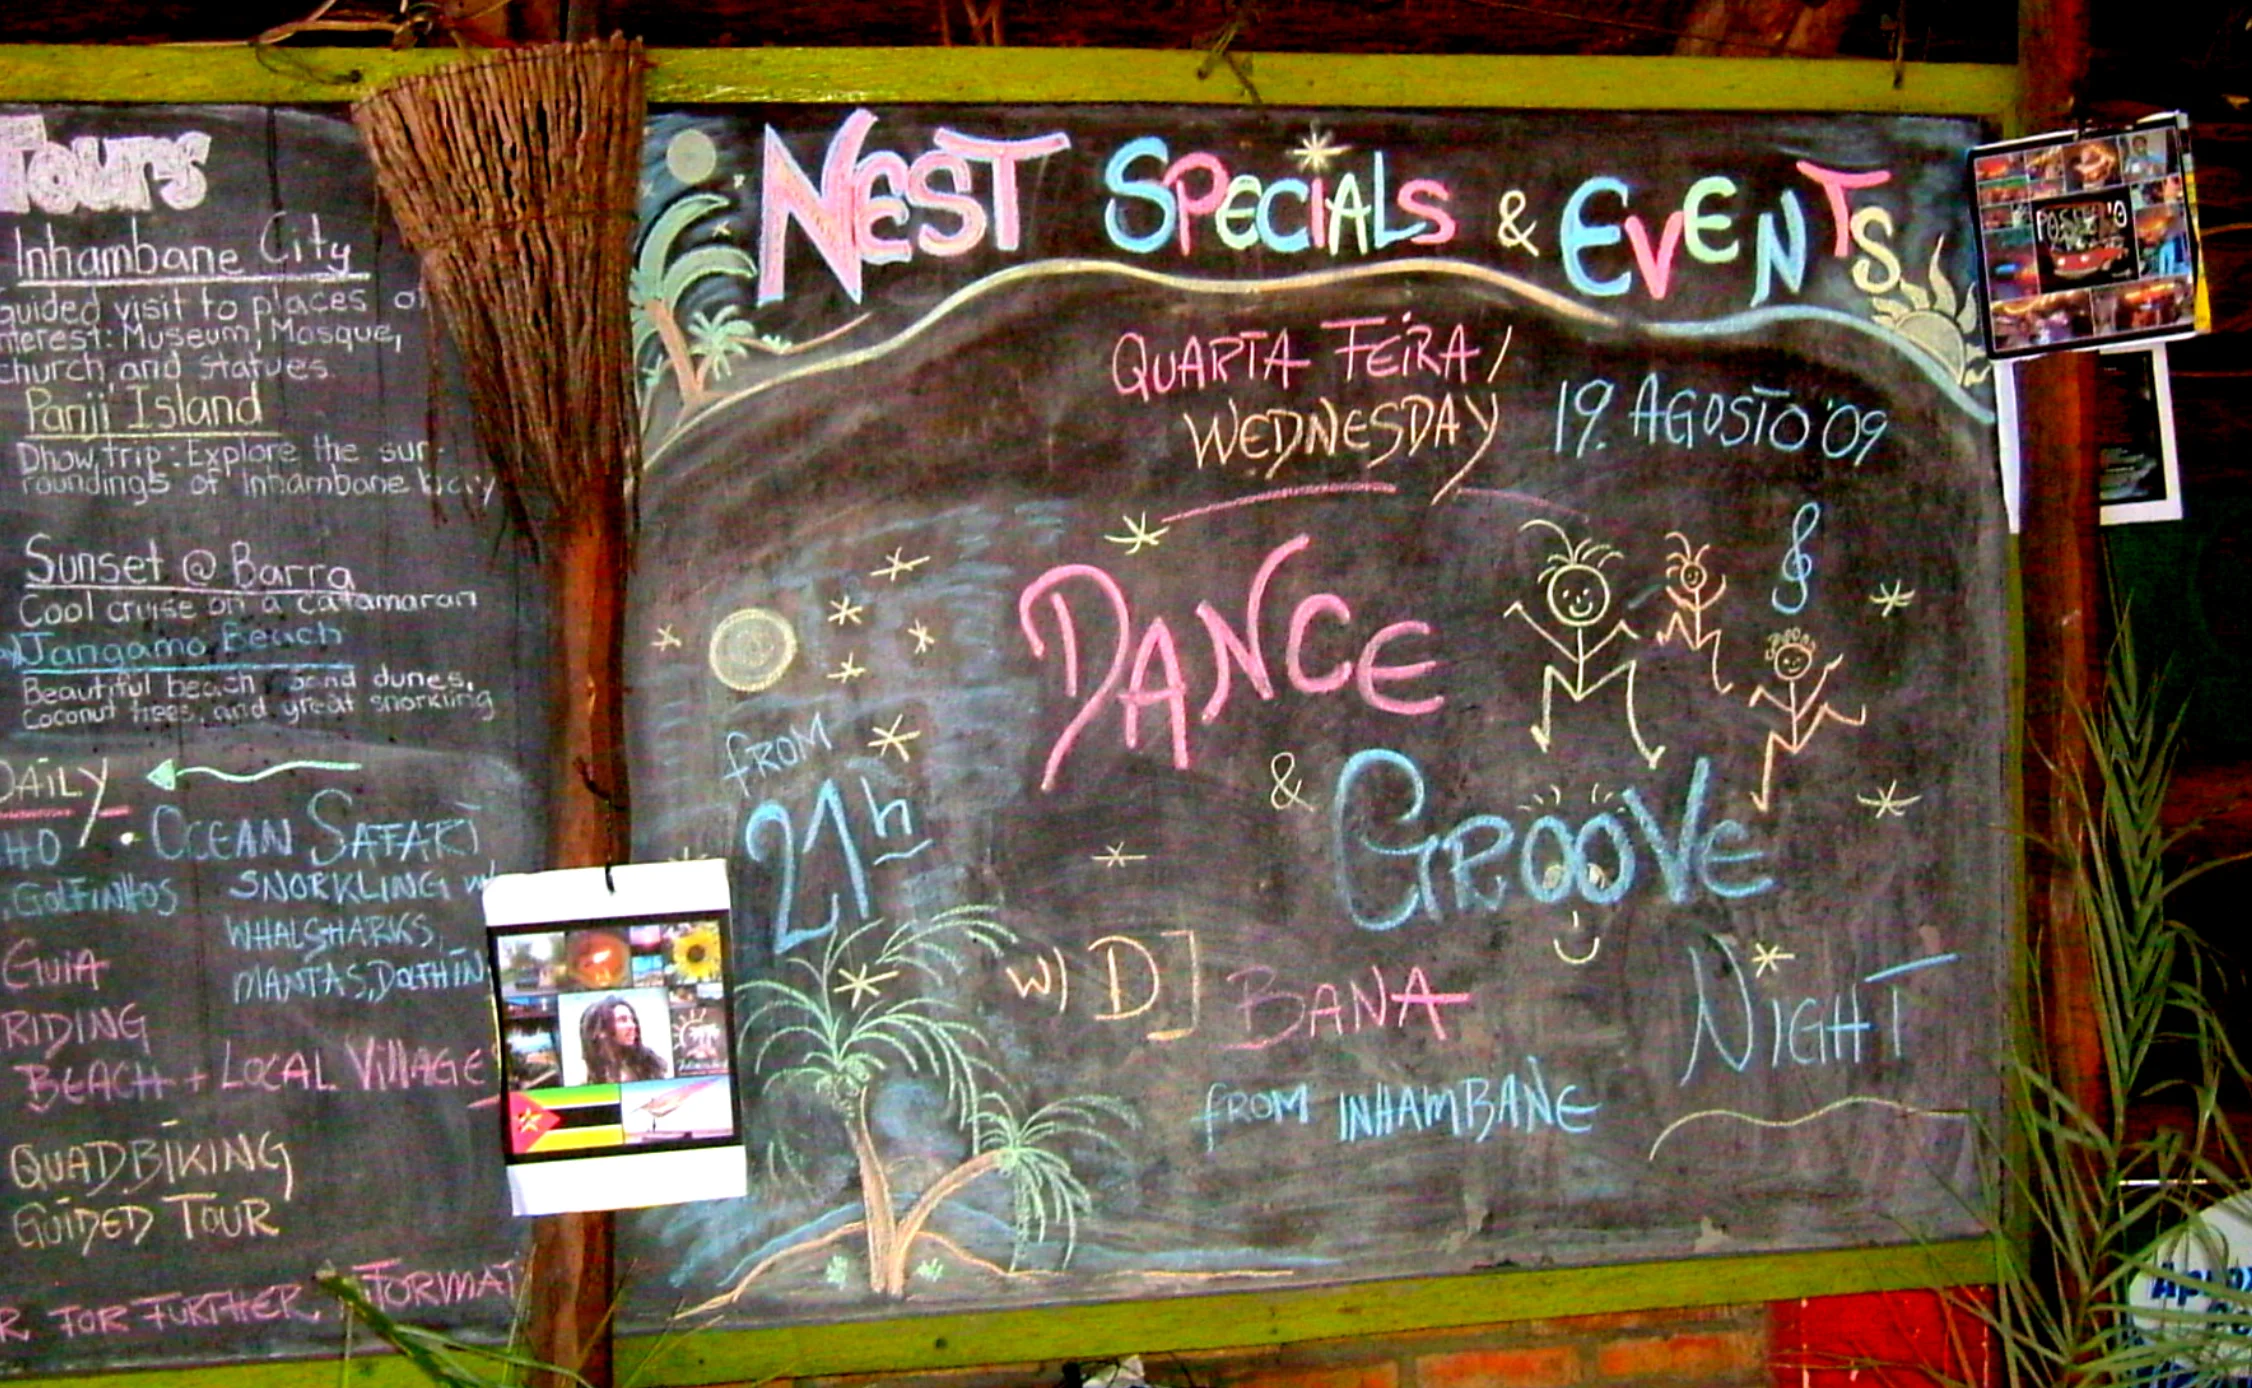 Tours
Inhambane City
guided visit to places of
nterest: Museum, Mosque,
church, and statues.
Panji Island
Dhow trip: Explore the sur-
roundings of Inhambane
Sunset @ Barra
Cool cruise on a catamaran
Jangamo Beach
Beautiful beach, sand dunes,
Coconut trees, and great snorkling
DAILY
HO • OCEAN SAFARI
GOLFINHOS SNORKLING W/
WHALSHARKS,
GUIA MANTAS, DOLTHIN
RIDING
BEACH + LOCAL VILLAGE
QUADBIKING
GUIDED TOUR
R FOR FURTHER INFORMAT
NEST SPECIALS & EVENTS
QUARTA FEIRA /
WEDNESDAY 19. AGOSTO '09
DANCE
FROM
21h
& GROOVE
W/ DJ BANA NIGHT
FROM INHAMBANE